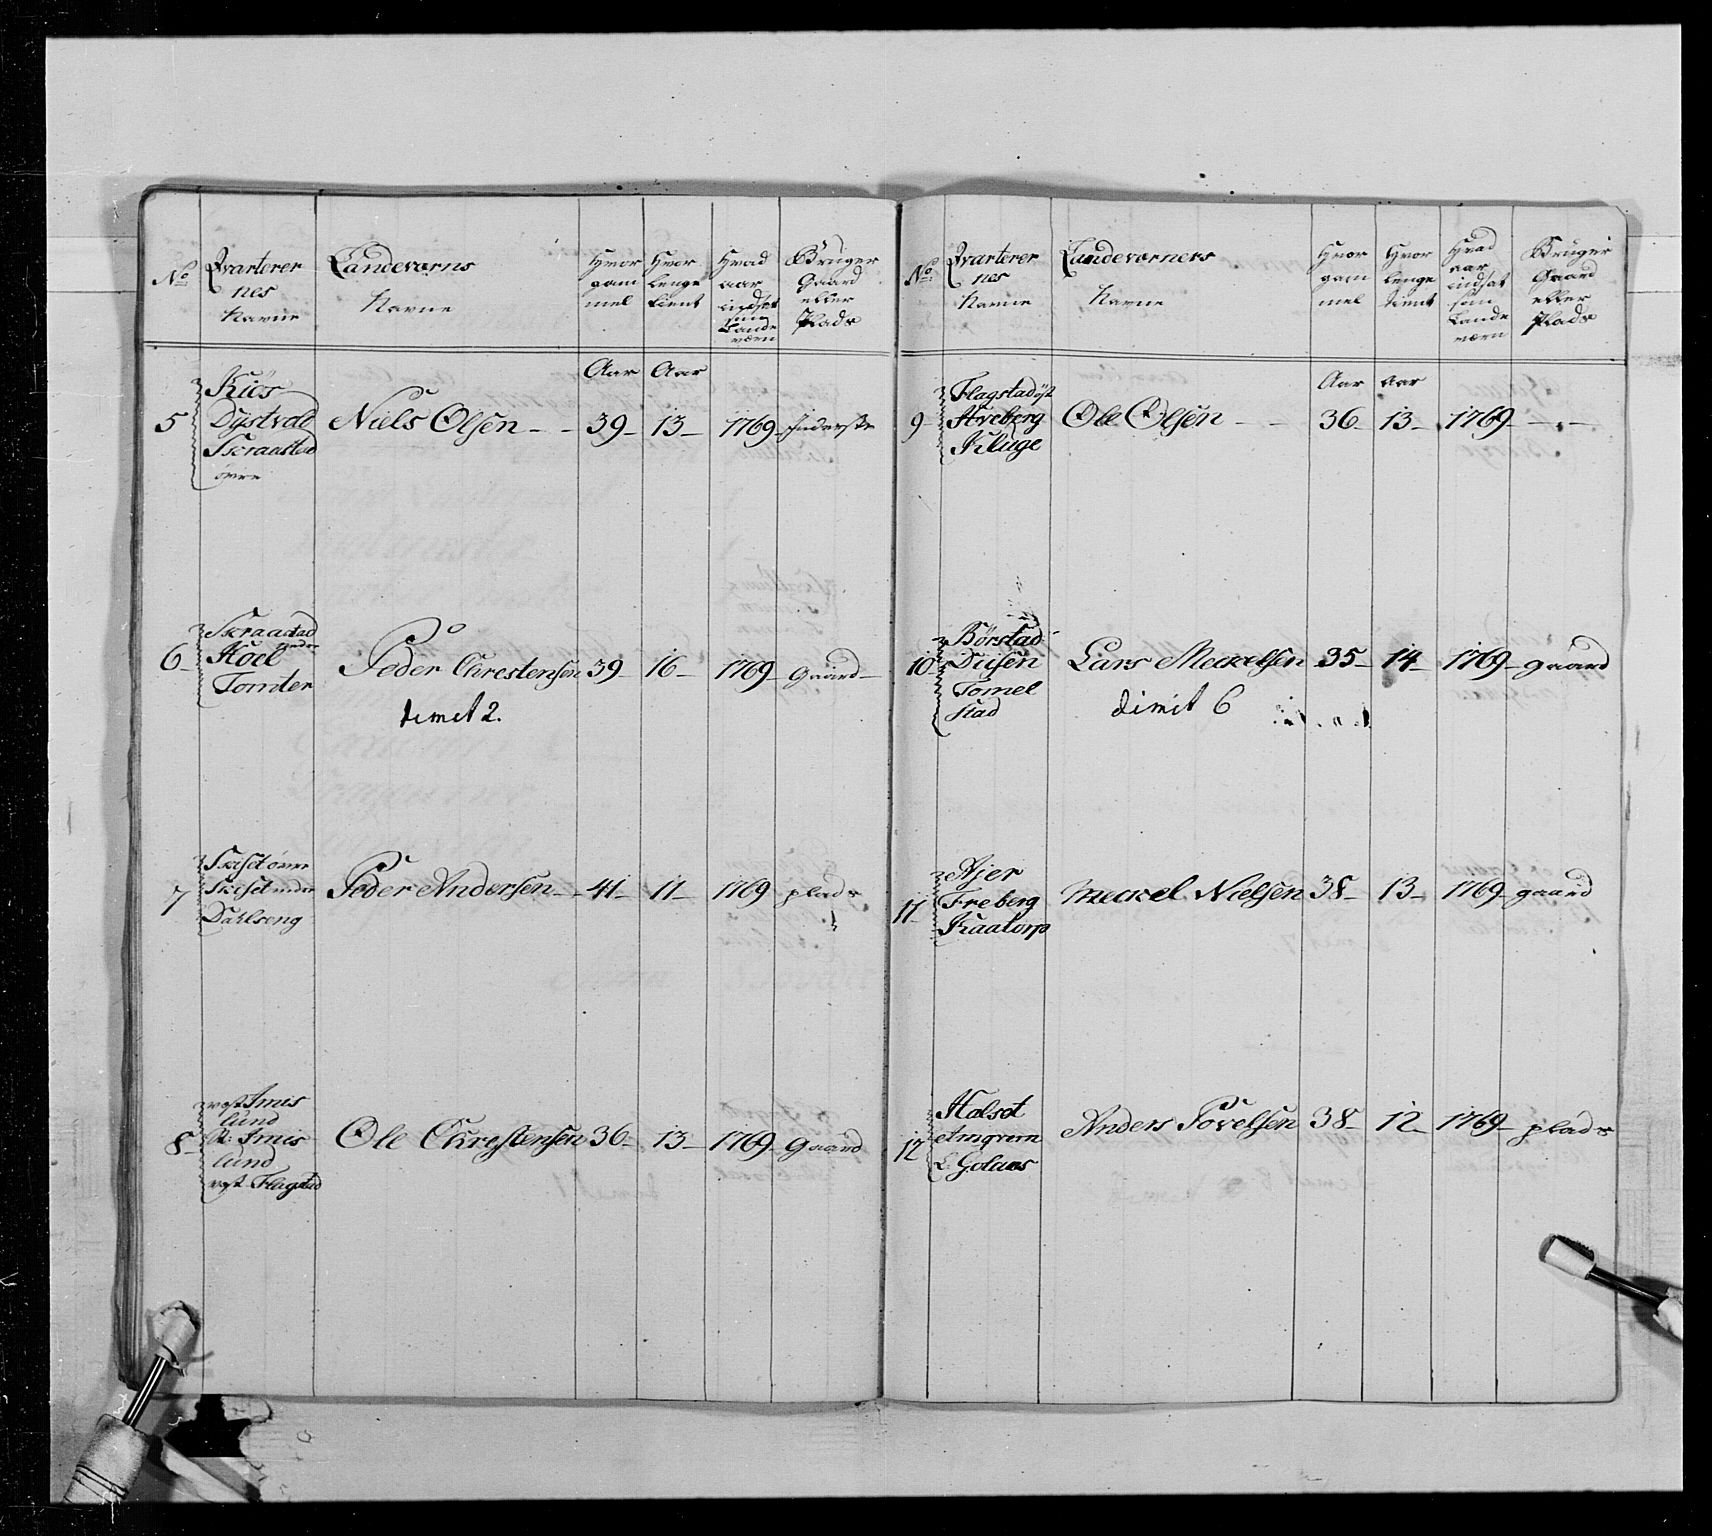 No
Qvarterer
nes
Navne
Landeværns
Navne
Hvor
gam
mel
Hvor
lenge
tient
Hvad
aar
indsat
som
Lande
værn
Bruger
Gaard
eller
Plads
Aar Aar
5
Kiøs
Dystvold
Skraastad
øvre
Niels Olsen - - 39- 13- 1769- Inderste
6-
Skraastad
nedre
Hoel
Tomter
Peder Chrestensen 39- 16- 1769- Gaard-
dimit 2.
7
Skiset øvre
Skiset nedre
Dahlseng
Peder Andersen - - 41- 11- 1769 plads
8-
vest Imis
lund
Ø: Imis
lund
vest Flagstad
Ole Chrestensen 36- 13- 1769- Gaard
No:
Qvarterer
nes
Navne
Landeværners
Navne
Hvor
gam
mel
Hvor
lenge
tient
Hvad
aar
indsat
som
Lande
værn
Bruger
Gaard
eller
Plads
Aar aar
9-
Flagstad øst
Hveberg
Kluge
Ole Olsen - - 36- 13- 1769- - . -
10-
Børstad
Diisen
Tomel
stad
Lars Meckelsen 35- 14- 1769- gaard
dimit 6
11-
Ajer
Freberg
Kaatorp
Meckel Nielsen 38- 13- 1769- gaard
12
Halset
Arngrim
L: Golaas
Anders Povelsen 38- 12- 1769- plads